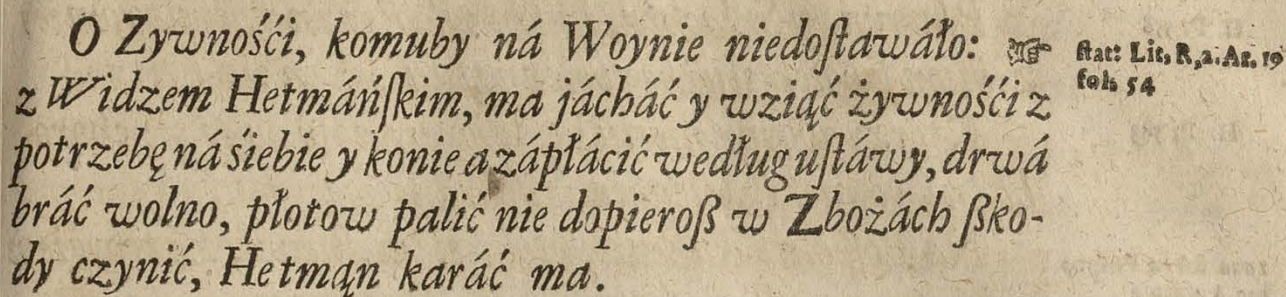 O Zywnośći, komuby ná Woynie niedoſtawáło: ☞
z Widzem Hetmáńſkim, ma jácháć y wziąć żywnośći z
potrzebę ná śiebie y konie a zápłácić według uſtáwy, drwá
bráć wolno, płotow palić nie dopieroß w Zbożách ßko-
dy czynić, Hetmąn karáć ma.
ſtat: Lit, R, 2. Ar. 19
fol. 54